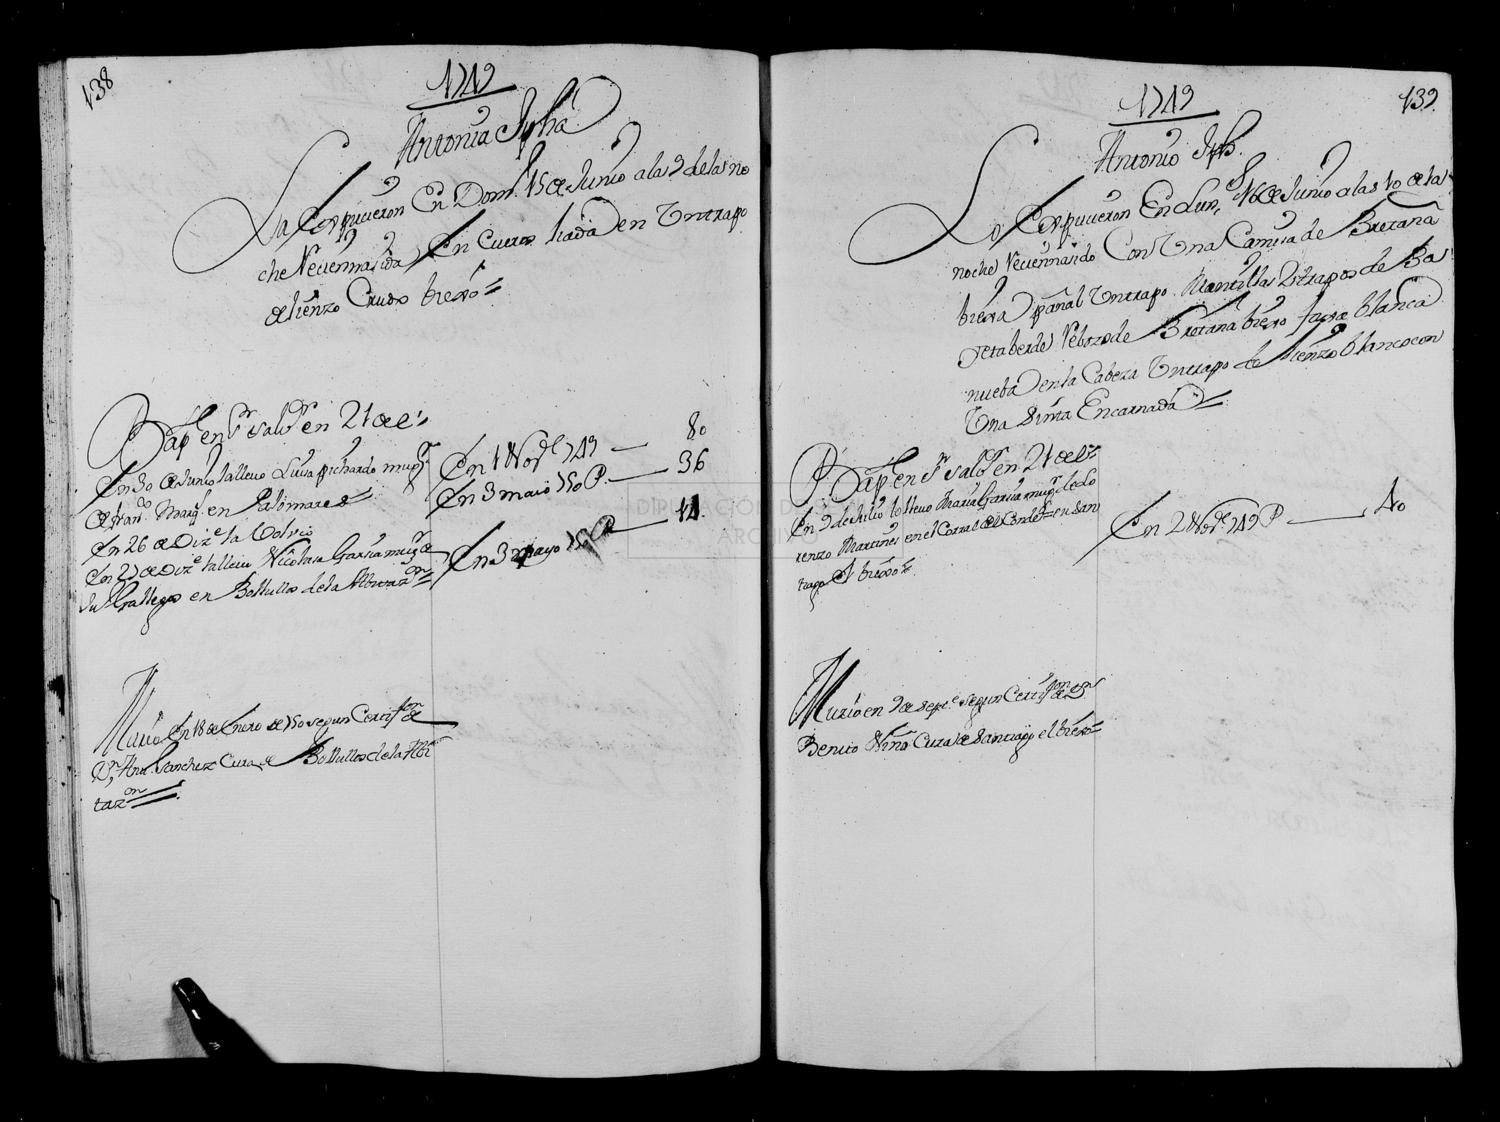 138
1749
Antonia Jpha
La Expucieron En Dom.º 15 de Junio a las 9 de la no
che Reciennasida En Cueros liada en Un trapo
de lienzo Crudo bieJo
Bap.º en S.r Salv.r en 21 de el
En 30 de Junio la llevo Luisa pichardo mug.r
de fran.co Marq.s en Palomares
En 26 de Diz.e la Volvio
En 27 de Diz.e la llevo Nicolasa Garcia mug.r de
Ju.º Gallegos en Bollullos de la Mitaz.on
En 1 Nov.e 749 — 80
En 3 maio 750 P. — 36
En 3 mayo
Murio En 18 de Enero de 750 segun Certif.on de
D.n Sanchez Cura de Bollullos de la Mi
taz.on
139
1749
Antonio Jph.
Lo Expucieron En Lun.s 16 de Junio a las 10 de la
noche Reciennasido Con Una Camisa de Bretaña
bieJa pañal Un trapo Mantillas 2 trapos de Ba
Jeta berde Rebozo de Bretaña bieJo faxa blanca
nueba en la Cabeza Un trapo de lienzo blanco con
Una Sinta Encarnada
Bap.º en S.r Salv.r en 21 de el
En 2 de Julio lo llevo Maria Garcia mug.r de Lo
renzo Martines en el Corral del Conde en San
tiago el bieJo
En 2 Nov.e 749 P — 40
Murio en 9 de Sep.e segun Certif.on de D.n
Benito Niño Cura de Santiago el bieJo
DIPUTACIÓN DE SEVILLA
ARCHIVO